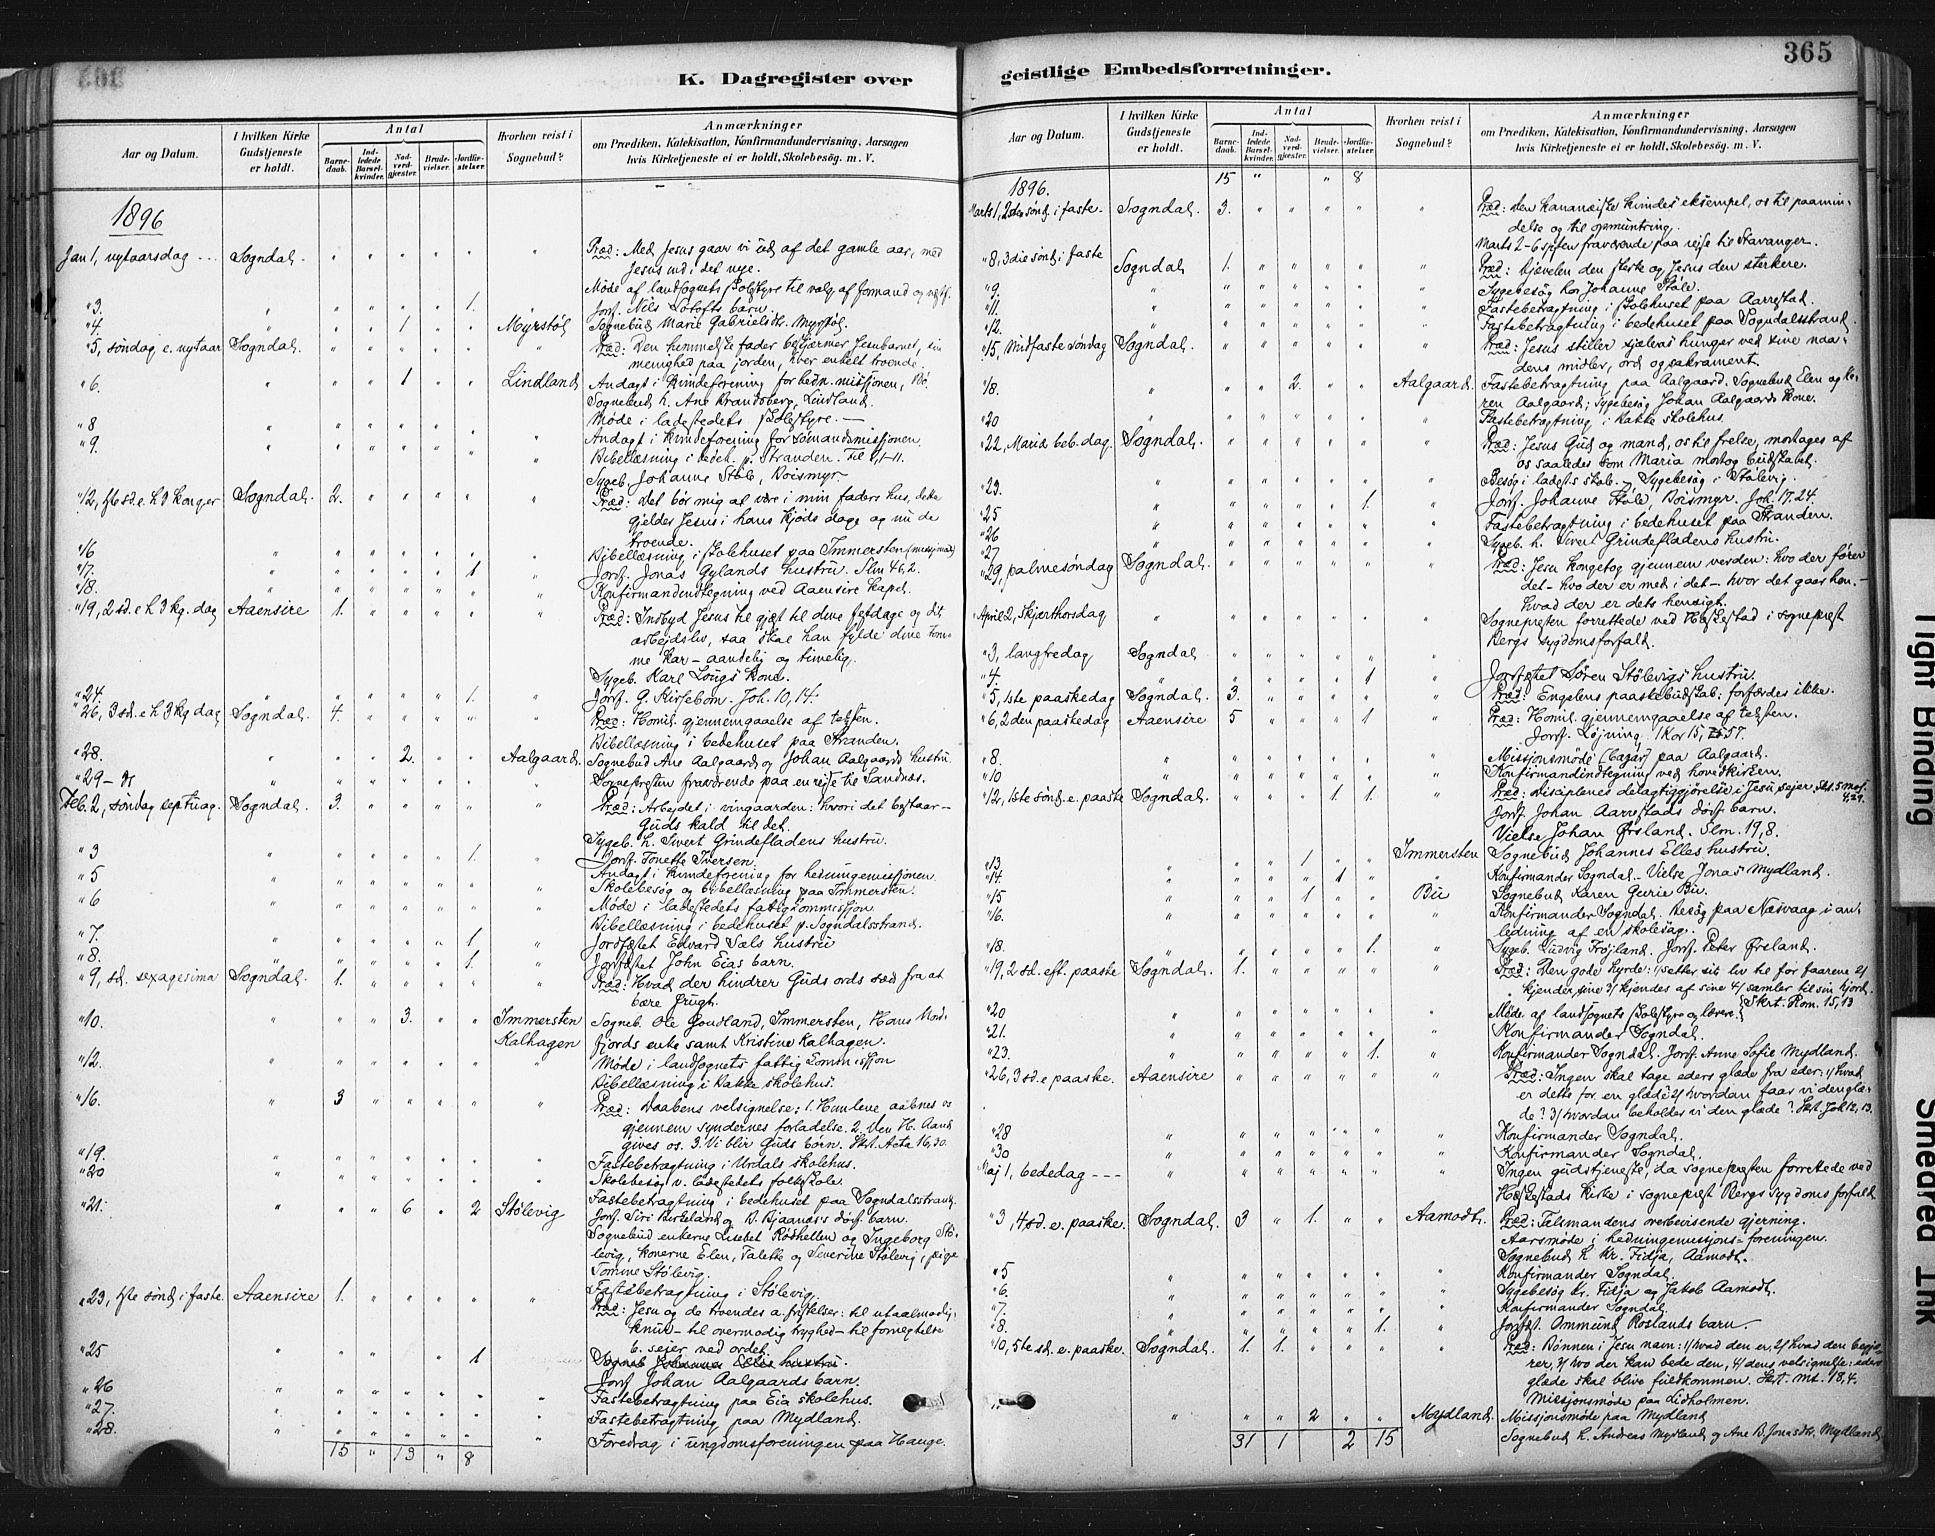 K. Dagregister over geistlige Embedsforretninger.
365
Aar og Datum.
I hvilken Kirke Gudstjeneste er holdt.
Antal
Barnedaab.
Indledede Barselkvinder.
Nadverdgjæster.
Brudevielser.
Jordfæstelser.
Hvorhen reist i Sognebud?
Anmærkninger
om Prædiken, Katekisation, Konfirmandundervisning, Aarsagen
hvis Kirketjeneste ei er holdt, Skolebesøg. m. V.
1896
Jan 1, nytaarsdag Sogndal. Præd: Med Jesus gaar vi ud af det gamle aar, med
Jesus ind i det nye.
Møde af landsognets skolestyre til valg af formand og
"3. 1. Jordf. Nils Løtofts barn.
"4 1 Myrstøl Sognebud Marie Gabrielsdt. Myrstøl.
"5, søndag e. nytaar Sogndal. Præd: Den himmelske fader beskjærmer Jesubarnet, sin
menighed paa jorden, hver enkelt troende.
"6. 1 Lindland Andagt i kvindeforening for hedn. missjonen,
Sognebud h. Ane Brandsberg, Lindland.
"8 Møde i ladestedets skolestyre.
"9. Andagt i kvindeforening for sømandsmissjonen.
Bibellæsning i bedeh. p. Stranden. Til 2,1-11.
Sygeb. Johanne Støle, Boismyr.
"12, 1ste sd. e. h 3 konger Sogndal. 2. Præd: Det bør mig at være i min faders hus, dette
gjelder Jesus i hans kjøds dage og nu de
troende.
"16 Bibellæsning i skolehuset paa Immersten
"17. 1 Jordf. Jonas Gylands hustru. Slm 46,2.
"18. Konfirmandindtegning ved Aaensire kapel.
"19, 2 sd. e h 3 kg. dag Aaensire 1. Præd: Indbyd Jesus til gjæst til dine festdage og dit
arbejdsliv, saa skal han fylde dine tom-
me kar - aandelig og timelig.
Sygeb. Karl Lougs kone.
"24 1. Jordf. G. Kirkebøm. Joh. 10,14.
"26, 3 sd. e h 3 kg dag Sogndal. 4. Præd: Homil. gjennemgaaelse af teksten.
Bibellæsning i bedehuset paa Stranden.
"28. 2. Aalgaard. Sognebud Ane Aalgaard og Johan Aalgaards hustru.
"29-31 Sognepresten fraværende paa en rejse til Sandnæs.
Feb. 2, søndag septuag. Sogndal. 3. Præd: Arbejdet i vingaarden: hvori det bestaar -
Guds kald til det.
Sygeb. h. Sivert Grindefladens hustru.
"3 1. Jordf. Tonette Iversen.
"5 Andagt i kvindeforening for hedningemissjonen.
Skolebesøg og bibellæsning paa Immersten.
"6 Møde i ladestedets fattigkommissjon.
Bibellæsning i bedehuset p. Sogndalsstrand.
"7. 1 Jordfæstet Edvard Sæls hustru
"8. 1. Jordfæstet John Eias barn.
"9, sd. sexagesima Sogndal. 1. Præd: Hvad der hindrer Guds ords sæd fra at
bære frugt.
"10. 3. Immersten Sogneb. Ole Goudland, Immersten, Hans
Kalhagen fjords enke samt Kristine Kalhagen.
"12. Møde i landsognets fattigkommissjon
Bibellæsning i Rakke skolehus.
"16. 3 Præd: Daabens velsignelse: 1. Himlene aabnes os
gjennem syndernes forladelse. 2. Den H. Aand
gives os. 3. Vi blir Guds børn. Skt. Acta 16,30.
"19. Fastebetragtning i Urdals skolehus.
"20 Skolebesøg v. ladestedets folkskole.
"21. 6 2 Stølevig Fastebetragtning i bedehuset paa Sogndalsstrand.
Jordf. Siri Birkeland og B. Bjaanes's døpf. barn.
Sognebud enkerne Lisebet Rødhellen og Ingeborg Stø-
levig, konerne Elen, Valette og Severine Stølevig, pige
Tomine Stølevig.
Fastebetragtning i Stølevig.
"23, 1ste sønd. i faste. Aaensire 1. Præd: Jesu og de troendes 2. fristelser: til utaalmodig
knur - til overmodig tryghed - til fornegtelse
6. sejer ved ordet.
"25 1 Sogneb Johannes Elles hustru.
Jordf. Johan Aalgaards barn.
"26 Fastebetragtning paa Eia skolehus.
"27. Fastebetragtning paa Mydland.
"28. Foredrag i ungdomsforeningen paa Hauge.
15 " 13 " 8
Aar og Datum.
I hvilken Kirke Gudstjeneste er holdt.
Antal
Barnedaab.
Indledede Barselkvinder.
Nadverdgjæster.
Brudevielser.
Jordfæstelser.
Hvorhen reist i Sognebud?
Anmærkninger
om Prædiken, Katekisation, Konfirmandundervisning, Aarsagen
hvis Kirketjeneste ei er holdt, Skolebesøg. m. V.
1896. 15 " " 8
Marts 1, 2den sønd. i faste. Sogndal. 3. Præd: Den kananæiske kvindes eksempel, os til paamin-
delse og til opmuntring.
Marts 2-6 spsten fraværende paa rejse til Stavanger.
"8, 3die sønd. i faste Sogndal 1. Præd: Djævelen den sterke og Jesus den sterkere.
"9. Sygebesøg hos Johanne Støle.
"11. Fastebetragtning i skolehuset paa Aarrestad.
"12. Fastebetragtning i bedehuset paa Sogndalsstrand.
"15, Midfaste søndag Sogndal. Præd: Jesus stiller sjælens hunger ved sine naa-
dens midler, ord og sakrament.
"18. 2. Aalgaard. Fastebetragtning paa Aalgaard. Sognebud Elen og Ka-
ren Aalgaard; Sygebesøg Johan Aalgaards kone.
"20 Fastebetragtning i Rakke skolehus.
"22, Mariæ beb. dag. Sogndal. Præd: Jesus Gud og mand, os til frelse, modtages af
os saaledes som Maria modtog budskabet.
"23. Besøg i ladests skab. Sygebesøg i Stølevig.
"25 1. Jordf. Johanne Støle, Boismyr. Joh. 17.24.
"26 Fastebetragtning i bedehuset paa Stranden.
"27 Sygeb. h. Sivert Grindefladens hustru.
"29, palmesøndag Sogndal. Præd: Jesu kongetog gjennem verden: hvo der fører
det - hvo der er med i det - hvor det gaar hen -
hvad der er dets hensigt.
April 2, Skjærthorsdag Sognepresten forrettede ved Heskestad i sogneprest
Bergs sygdomsforfald.
"3, langfredag Sogndal
"4. 1 Jordfæstet Søren Stølevigs hustru.
"5, 1ste paaskedag Sogndal. 3. Præd: Engelens paaskebudskab: forfærdes ikke.
"6, 2den paaskedag Aaensire 5 1 Præd: Homil. gjennemgaaelse af teksten.
Jordf. Løjning. 1 Kor 15, 57.
"8. Missjonsmøde (bazar) paa Aalgaard.
"10 Konfirmandindtegning ved hovedkirken.
"12, 1ste sønd. e. paaske Sogndal. 1. 1. Præd: Disciplenes delagtiggjørelse i Jesu sejer, Skt. 5 mos. 4.29.
Jordf. Johan Aarrestads døpf. barn.
Vielse Johan Ørsland. Slm. 19,8.
"13 1 Immersten Sognebud Johannes Elles hustru.
"14. 1 Konfirmander Sogndal - Vielse Jonas Mydland.
"15 1 Bu Sognebud Karen Gurie Bu.
"16. Konfirmander Sogndal. Besøg paa Næsvaag i an-
ledning af en skolesag.
"18. 1. Sygeb. Ludvig Frøjland. Jordf. Peter Ørsland.
"19, 2 sd. eft. paaske Sogndal. 1. Præd: Den gode hyrde: 1/ sætter sit liv til for faarene 2/
kjender sine 3/ kjendes af sine 4/ samler til sin hjord.
Skt. Rom. 15,13
"20 Møde af landsognets skolestyre og lærere.
"21. Konfirmander Sogndal.
"23. 1. Konfirmander Sogndal. Jordf. Anne Sofie Mydland.
"26, 3 sd. e paaske. Aaensire Præd: Ingen skal tage eders glæde fra eder: 1/ hvad
er dette for en glæde 2/ hvordan faar vi den glæ-
de? 3/ hvordan beholder vi den glæde? Skt. Joh 12,13.
"28 Konfirmander Sogndal.
"30 Konfirmander Sogndal.
Maj 1, bededag Ingen gudstjeneste, da sognepresten forrettede ved
Heskestads kirke i sogneprest Bergs sygdomsforfald
"3, 4 sd. e. paaske. Sogndal. 3 1. Aamodt. Præd: Talsmandens overbevisende gjerning.
Aarsmøde i hedningemissjons-foreningen.
Sognebud h Kr. Fidja, Aamodt.
"5 Konfirmander Sogndal
"6. Sygebesøg Kr. Fidja og Jakob Aamodt.
"7. Konfirmander Sogndal.
"8. 1. Jordfst. Ommund Roslands barn.
"10, 5te sd. e. paaske. Sogndal. 1. 1. Præd: Bønnen i Jesu navn: 1/ hvad den er, 2/ hvad den begjæ-
rer, 3/ hvo der kan bede den, 4/ dens velsignelse: eders
glæde skal blive fuldkommen. Skt. mt. 18,4.
Missjonsmøde paa Lidholmen.
2 Mydland. Missjonsmøde paa Mydland
31 1 2 15 Sognebud h. Andreas Mydland og Ane B. Jonasdt. Mydland
Tight Binding
Smeared Ink